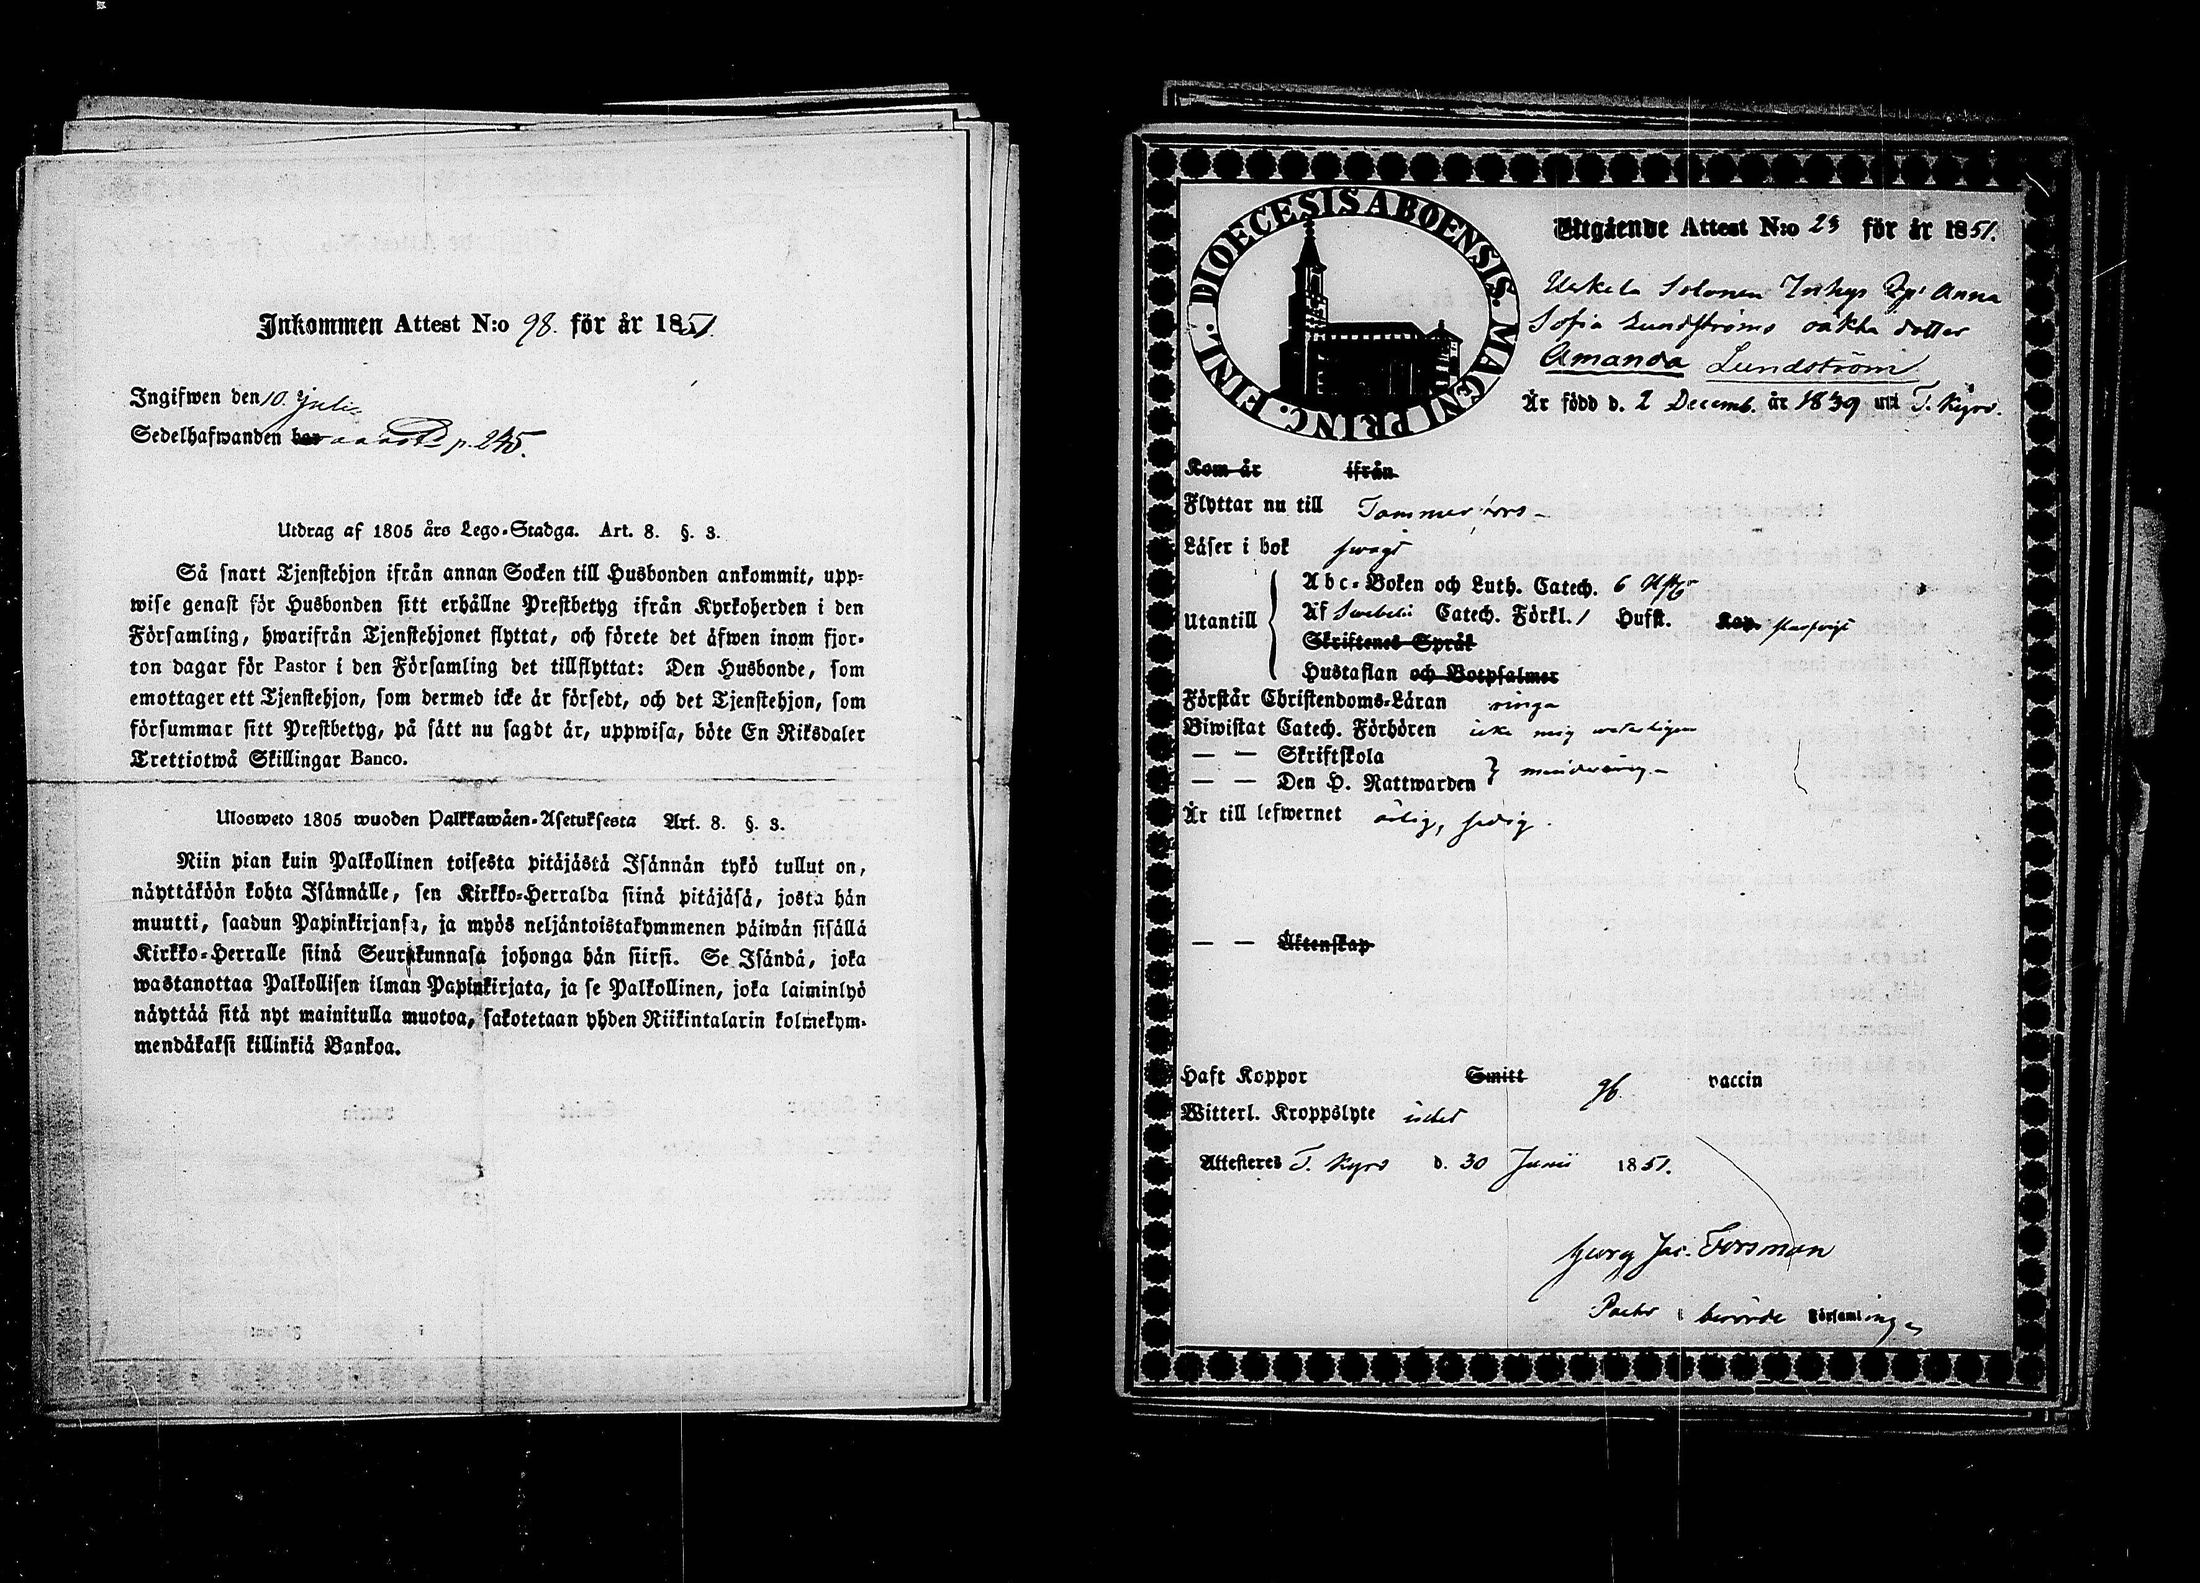 Inkommen Attest N:o 98. för år 1851.
Ingifwen den 10. Juli
Sedelhafwanden p. 245.
Utdrag af 1805 års Lego-Stadga. Art. 8. §. 3.
Så snart Tjenstehjon ifrån annan Socken till Husbonden ankommit, upp-
wise genast för Husbonden sitt erhållne Prestbetyg ifrån Kyrkoherden i den
Församling, hwarifrån Tjenstehjonet flyttat, och förete det äfwen inom fjor-
ton dagar för Pastor i den Församling det tillflyttat: Den Husbonde, som
emottager ett Tjenstehjon, som dermed icke är försedt, och det Tjenstehjon, som
försummar sitt Prestbetyg, på sätt nu sagdt är, uppwisa, böte En Riksdaler
Trettiotwå Skillingar Banco.
Ulosweto 1805 wuoden Palkkawäen-Asetuksesta Art. 8. §. 3.
Niin pian kuin Palkollinen toisesta pitäjästä Isännän tykö tullut on,
näyttäköön kohta Isännälle, sen Kirkko-Herralda siinä pitäjäsä, josta hän
muutti, saadun Papinkirjansa, ja myös neljäntoistakymmenen päiwän sisällä
Kirkko-Herralle siinä Seurakunnasa johonga hän siirsi. Se Isändä, joka
wastanottaa Palkollisen ilman Papinkirjata, ja se Palkollinen, joka laiminlyö
näyttää sitä nyt mainitulla muotoa, sakotetaan yhden Riikintalarin kolmekym-
mendäkaksi killinkiä Bankoa.
DIOECESIS ABOENSIS. MAGNI PRINC. FINL.
Utgående Attest N:o 23 för år 1851.
Uskela Solonen Inhys Anna
Sofia Lundströms oäkta dotter
Amanda Lundström
Är född d. 2 Decemb. år 1839 uti T. Kyro.
Kom år ifrån
Flyttar nu till Tammerfors
Läser i bok swagt
Utantill
Abc-Boken och Luth. Catech. 6
Af Swebelii Catech. Förkl. 1 Hufst. Kap.
Skriftenes Språk
Hustaflan och Botpsalmer
Förstår Christendoms-Läran ringa
Biwistat Catech. Förhören icke mig weterligen
— — Skriftskola
— — Den H. Nattwarden } minderårig
Är till lefwernet ärlig, sedig.
— — Äktenskap
Haft Koppor Smitt vaccin
Witterl. Kroppslyte intet
Attesteres T. Kyro d. 30 Junii 1851.
Georg Jac. Forsman
i berörde Församling